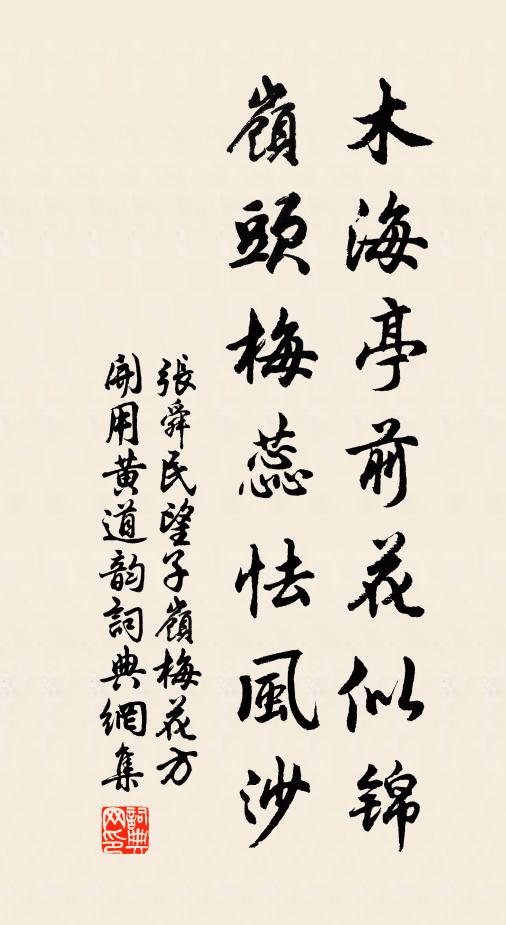 木海亭前花似锦
嶺頭梅蕊怯風沙
張舜民望子嶺梅花方
開用黄道韵詞典網集
詞典
网印